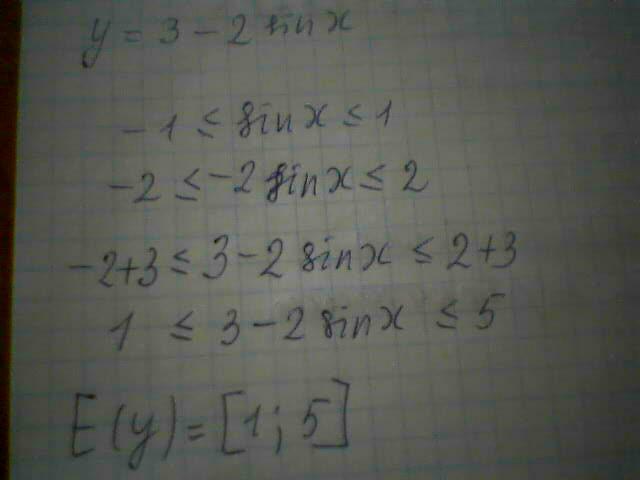 y = 3 - 2 sin x
-1 ≤ sin x ≤ 1
-2 ≤ -2 sin x ≤ 2
-2+3 ≤ 3 - 2 sin x ≤ 2+3
1 ≤ 3 - 2 sin x ≤ 5
E(y) = [1; 5]